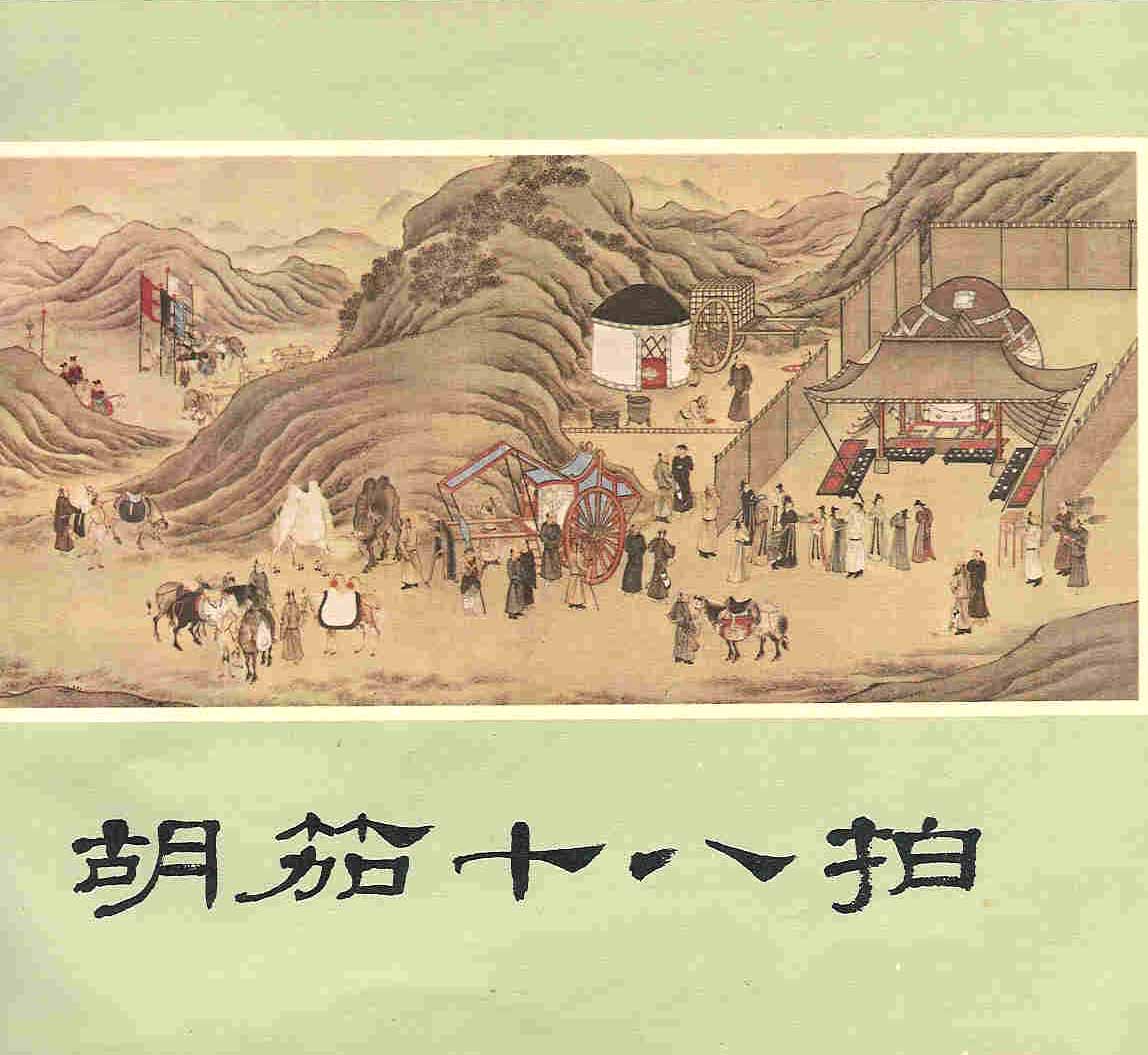 胡笳十八拍